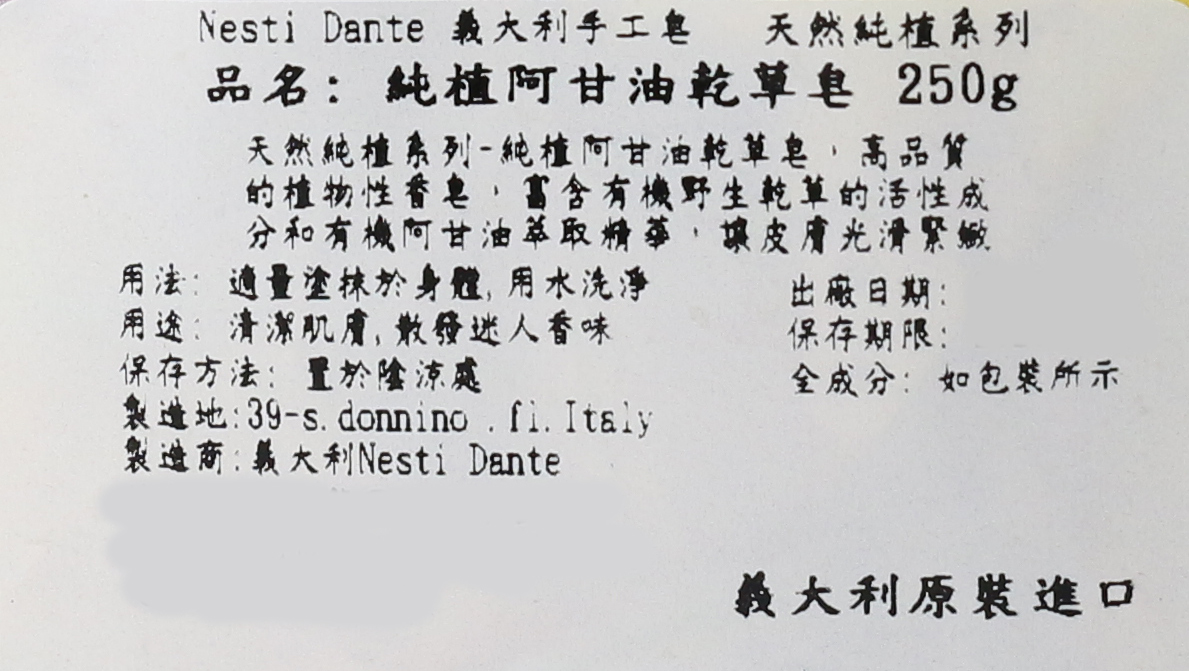 Nesti Dante 義大利手工皂 天然純植系列
品名: 純植阿甘油乾草皂 250g
天然純植系列-純植阿甘油乾草皂,高品質
的植物性香皂,富含有機野生乾草的活性成
分和有機阿甘油萃取精華,讓皮膚光滑緊緻
用法: 適量塗抹於身體,用水洗淨
用途: 清潔肌膚,散發迷人香味
保存方法: 置於陰涼處
製造地:39-s.donnino .fi.Italy
製造商:義大利Nesti Dante
出廠日期:
保存期限:
全成分: 如包裝所示
義大利原裝進口